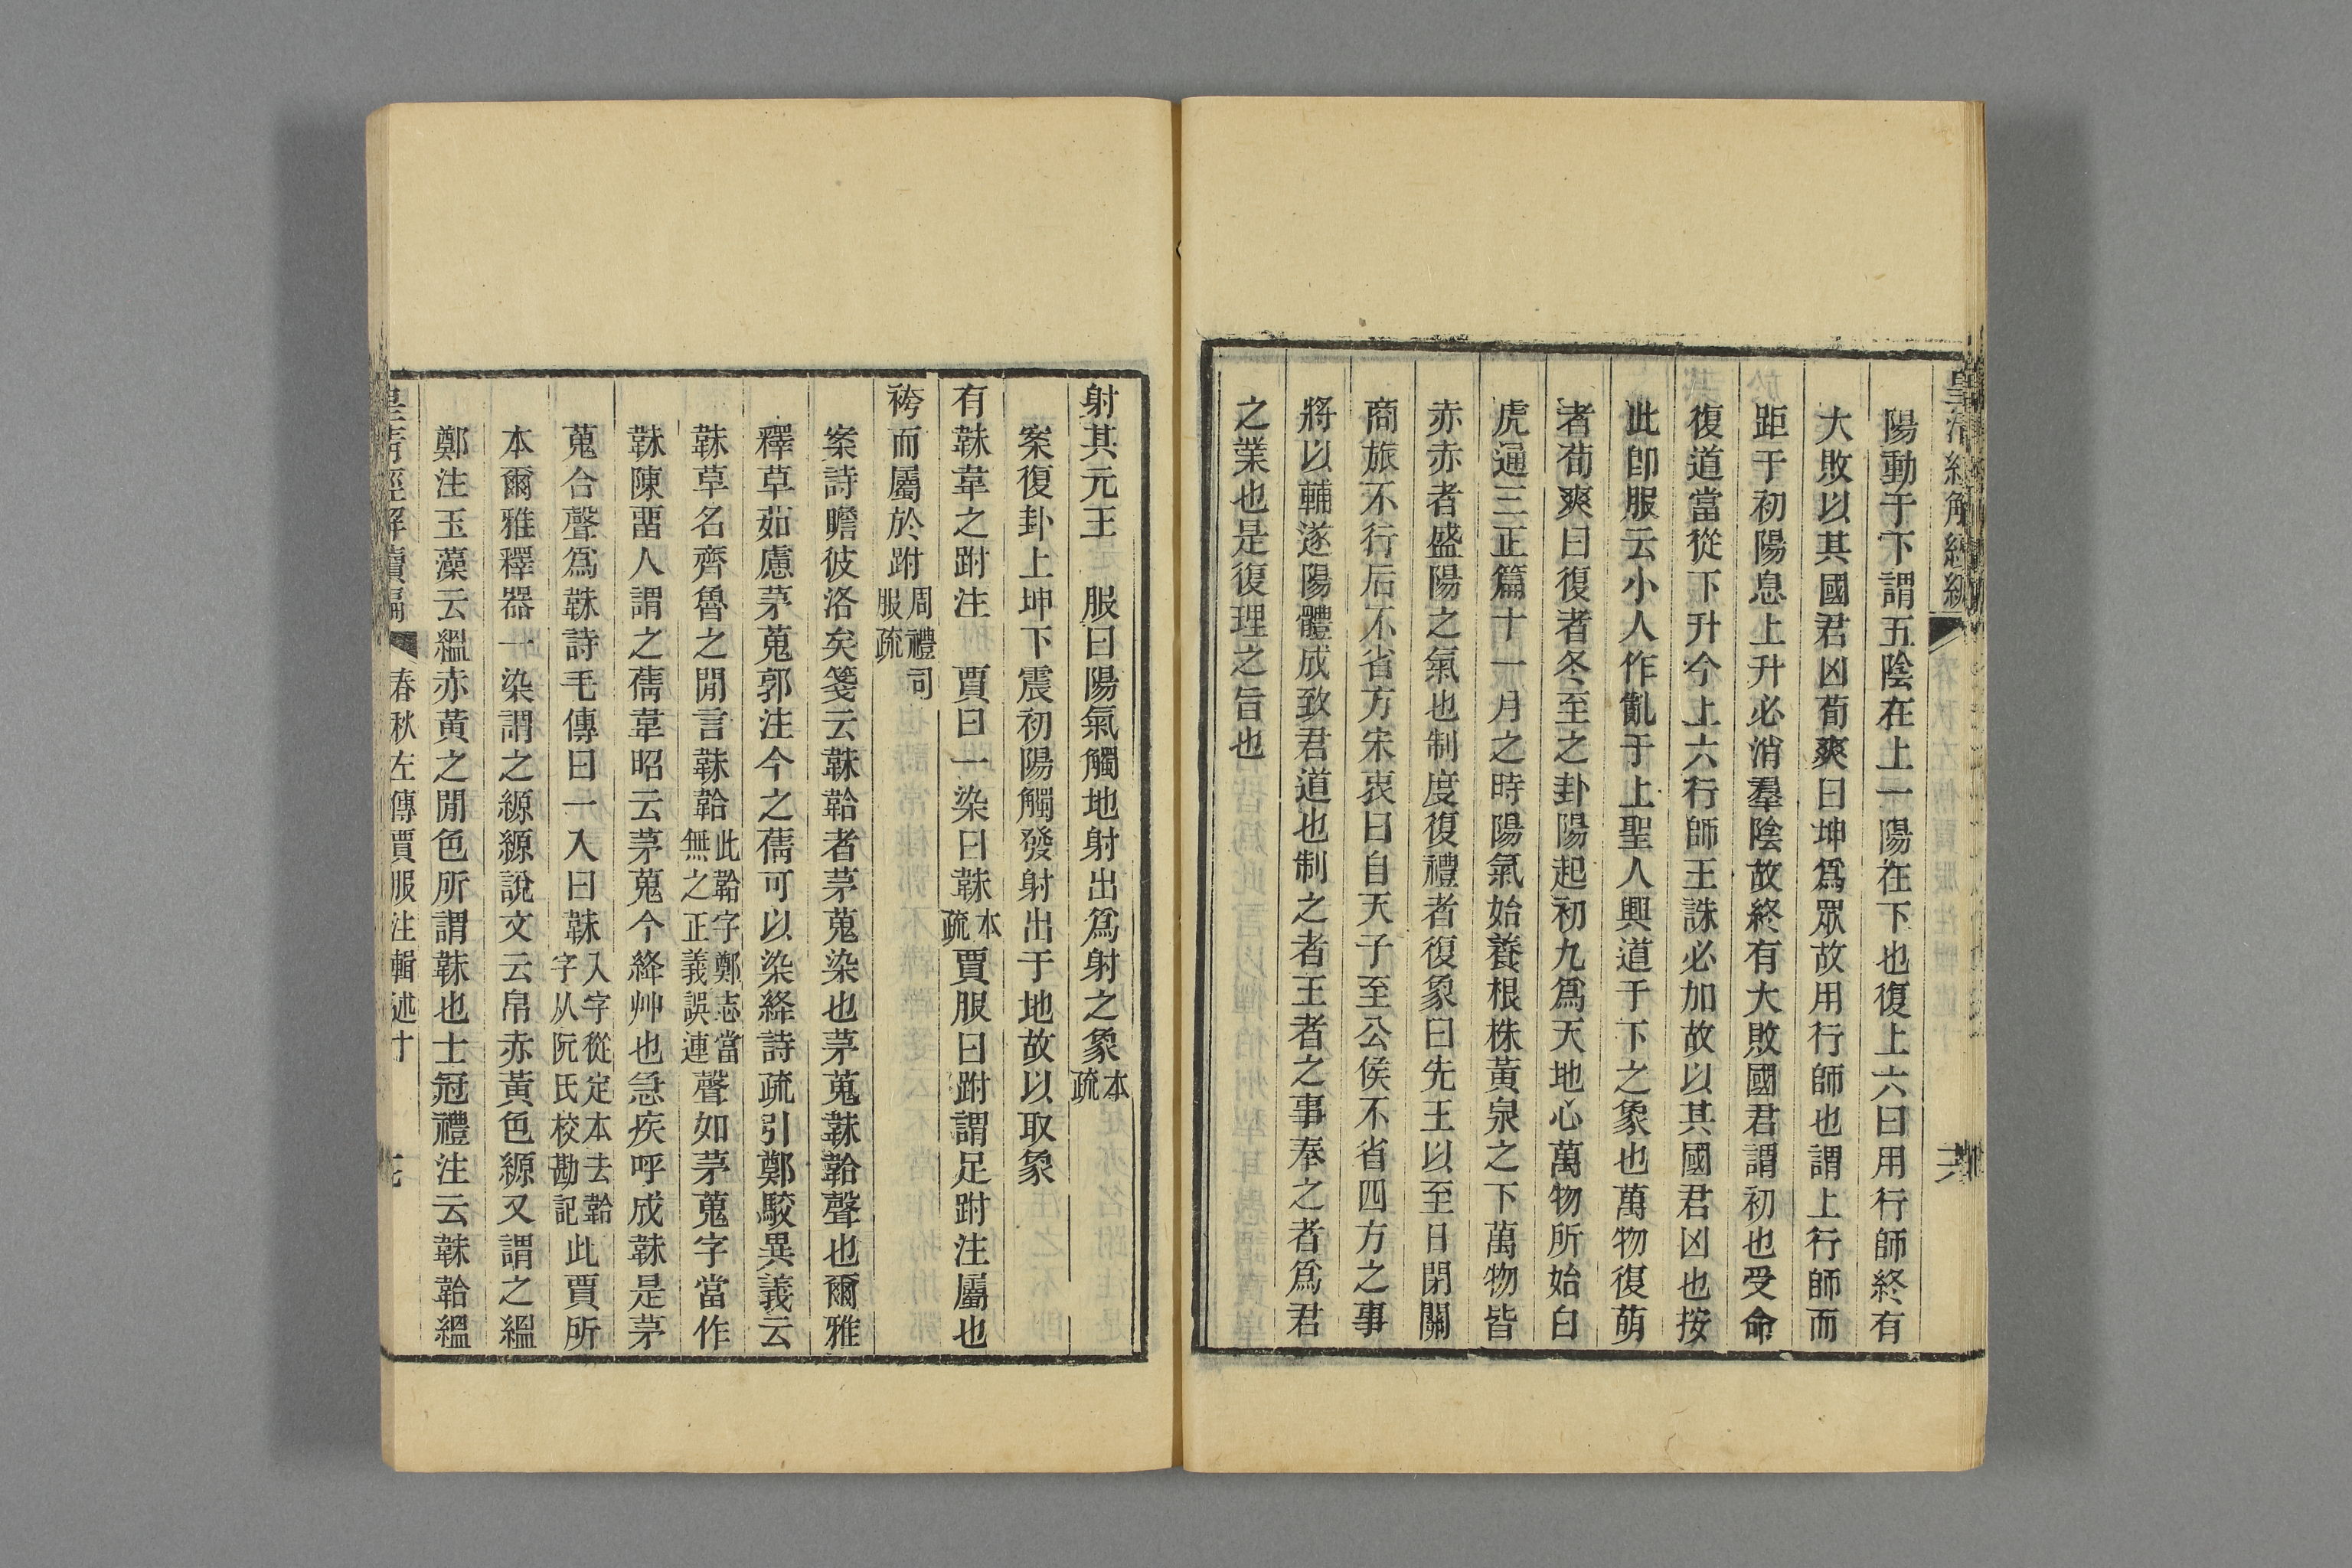 皇清經解續編
陽動于下謂五陰在上一陽在下也復上六曰用行師終有
大敗以其國君凶荀爽曰坤爲眾故用行師也謂上行師而
距于初陽息上升必消羣陰故終有大敗國君謂初也受命
復道當從下升今上六行師王誅必加故以其國君凶也按
此卽服云小人作亂于上聖人興道于下之象也萬物復萌
者荀爽曰復者冬至之卦陽起初九爲天地心萬物所始白
虎通三正篇十一月之時陽氣始養根株黃泉之下萬物皆
赤赤者盛陽之氣也制度復禮者復象曰先王以至日閉關
商旅不行后不省方宋衷曰自天子至公侯不省四方之事
將以輔遂陽體成致君道也制之者王者之事奉之者爲君
之業也是復理之旨也
射其元王　服曰陽氣觸地射出爲射之象本疏
案復卦上坤下震初陽觸發射出于地故以取象
有韎韋之跗注　賈曰一染曰韎本疏賈服曰跗謂足跗注屬也
袴而屬於跗周禮司服疏
案詩瞻彼洛矣箋云韎韐者茅蒐染也茅蒐韎韐聲也爾雅
釋草茹藘茅蒐郭注今之蒨可以染絳詩疏引鄭駁異義云
韎草名齊魯之閒言韎韐此韐字鄭志當無之正義誤連聲如茅蒐字當作
韎陳畱人謂之蒨韋昭云茅蒐今絳艸也急疾呼成韎是茅
蒐合聲爲韎詩毛傳曰一入曰韎入字從定本去韐字从阮氏校勘記此賈所
本爾雅釋器一染謂之縓縓說文云帛赤黃色縓又謂之縕
鄭注玉藻云縕赤黃之閒色所謂韎也士冠禮注云韎韐縕
皇清經解續編　春秋左傳賈服注輯述十